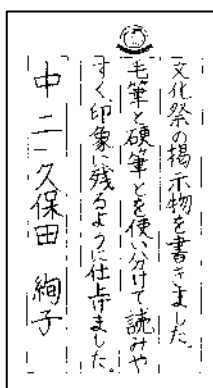 文化祭の掲示物を書きました。
毛筆と硬筆とを使い分けて読みや
すく、印象に残るように仕上げました。
中二 久保田 絢子